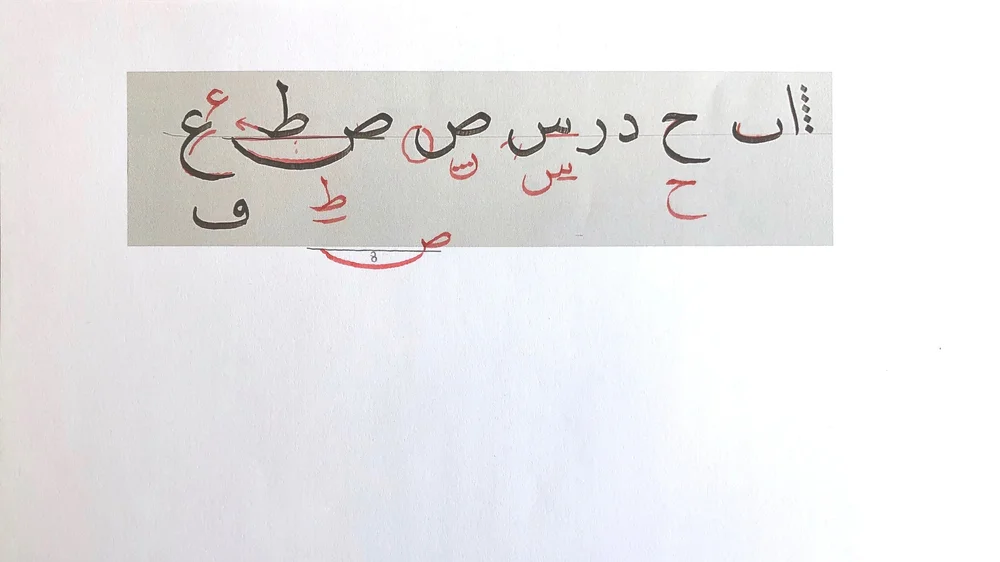 ا ٮ ح د ر س ص ص ط ع ع
ح س ط
ڡ
ص
8